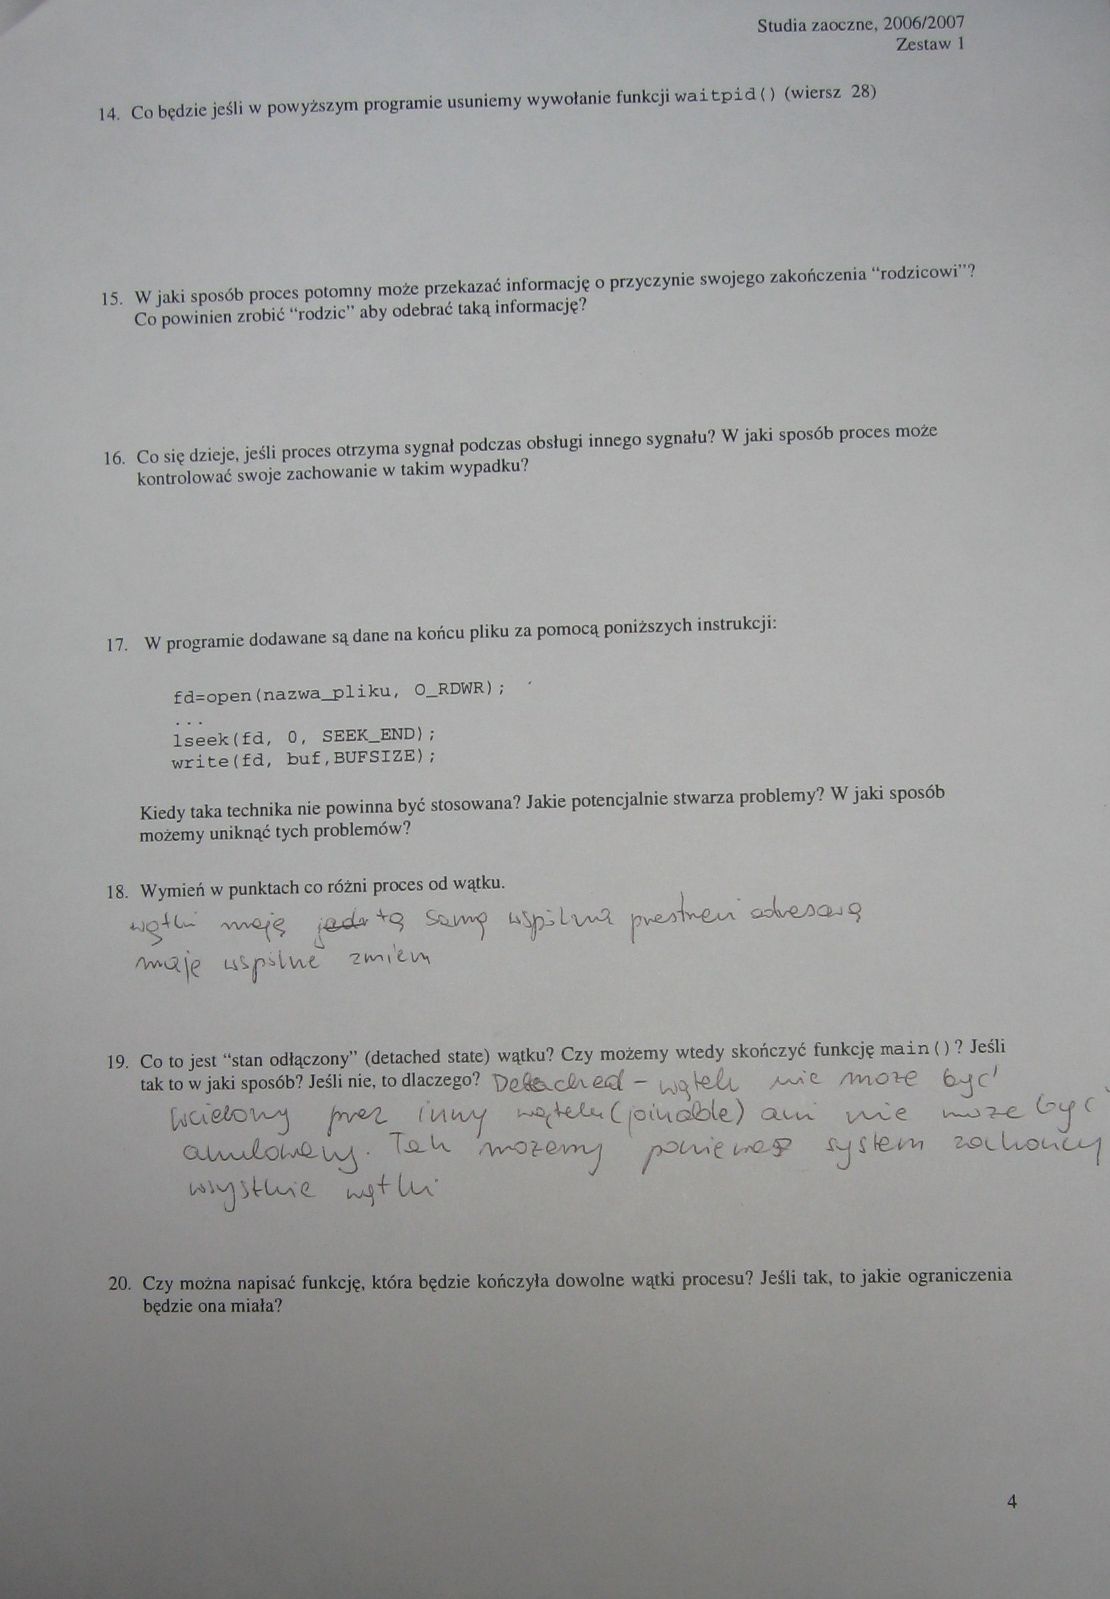 Studia zaoczne, 2006/2007
Zestaw 1
14. Co będzie jeśli w powyższym programie usuniemy wywołanie funkcji waitpid() (wiersz 28)
15. W jaki sposób proces potomny może przekazać informację o przyczynie swojego zakończenia “rodzicowi”?
Co powinien zrobić “rodzic” aby odebrać taką informację?
16. Co się dzieje, jeśli proces otrzyma sygnał podczas obsługi innego sygnału? W jaki sposób proces może
kontrolować swoje zachowanie w takim wypadku?
17. W programie dodawane są dane na końcu pliku za pomocą poniższych instrukcji:
fd=open(nazwa_pliku, O_RDWR);
...
lseek(fd, 0, SEEK_END);
write(fd, buf,BUFSIZE);
Kiedy taka technika nie powinna być stosowana? Jakie potencjalnie stwarza problemy? W jaki sposób
możemy uniknąć tych problemów?
18. Wymień w punktach co różni proces od wątku.
wątki mają tą samą wspólną przestrzeń adresową
mają wspólne zmienn
19. Co to jest “stan odłączony” (detached state) wątku? Czy możemy wtedy skończyć funkcję main()? Jeśli
tak to w jaki sposób? Jeśli nie, to dlaczego? Detached – wątek nie może być
wcielony przez inny wątek (joinable) ani nie może być
anulowany. Tak możemy ponieważ system zakończy
wszystkie wątki
20. Czy można napisać funkcję, która będzie kończyła dowolne wątki procesu? Jeśli tak, to jakie ograniczenia
będzie ona miała?
4